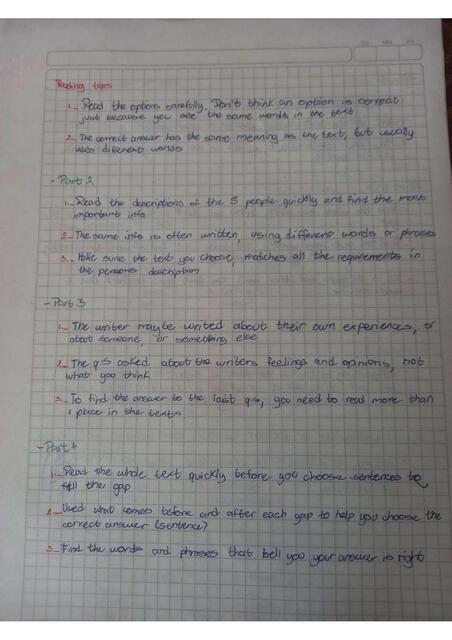 Reading tips
1.- Read the options carefully. Don't think an option is correct
just because you see the same words in the text
2.- The correct answer has the same meaning as the text, but usually
uses different words
- Part 2
1.- Read the descriptions of the 5 people quickly and find the most
important info
2.- The same info is often written, using different words or phrases
3.- Make sure the text you choose, matches all the requirements in
the persons description
- Part 3
1.- The writer maybe writed about their own experiences, or
about someone, or something else
2.- The q.s asked about the writers feelings and opinions, not
what you think
3.- To find the answer to the last q.s, you need to read more than
1 place in the texts
- Part 4
1.- Read the whole text quickly before you choose sentences to
fill the gap
2.- Used what comes before and after each gap to help you choose the
correct answer (sentence)
3.- Find the words and phrases that tell you your answer is right